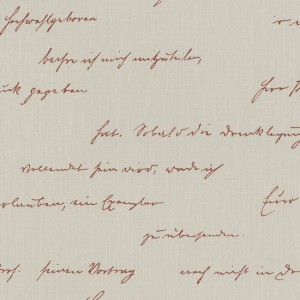 Hochwohlgeboren
beehre ich mich mitzuteilen,
gegeben
hat. Sobald die Drucklegung
Vollendet sein wird, werde ich
erlauben, ein Exemplar Euro
zu übersenden.
seinen Vortrag noch nicht in